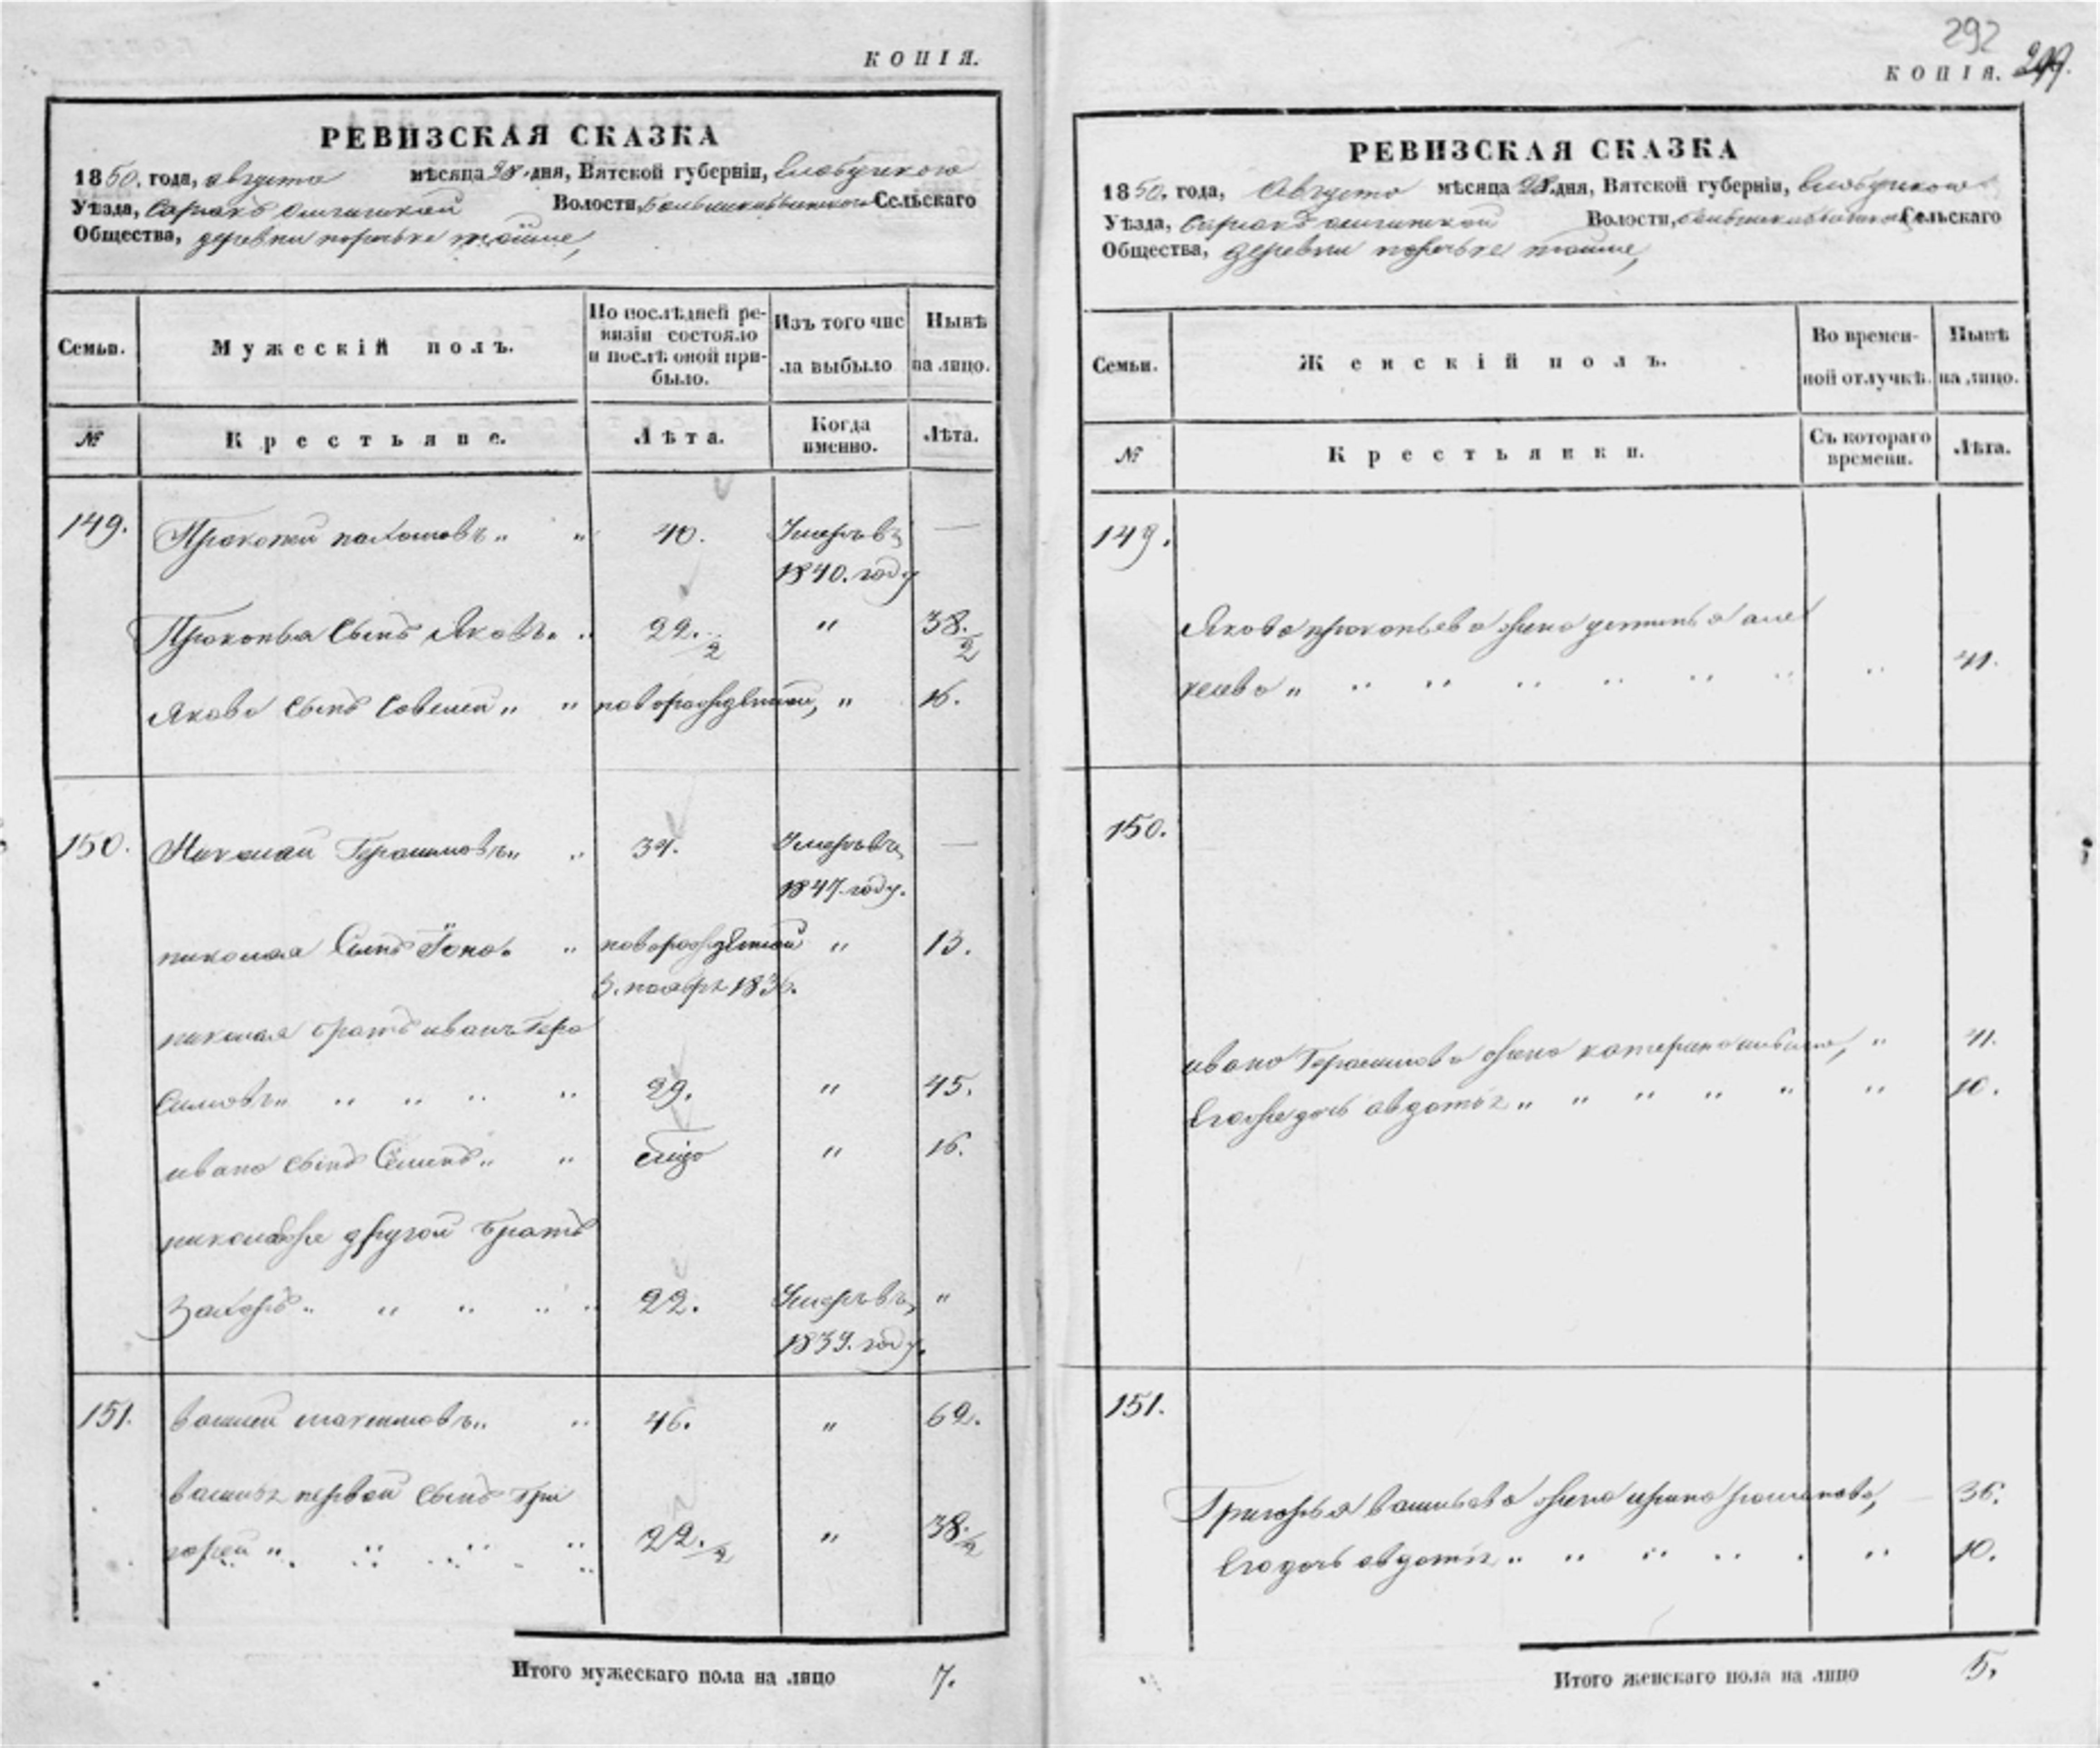 КОПІЯ.
РЕВИЗСКАЯ СКАЗКА
1850. года, августа мѣсяца 28. дня, Вятской губерніи, Елабужского
Уѣзда, Волости, Сельскаго
Общества, деревни
Семьи.
Мужескій полъ.
По послѣдней ре-
визіи состояло
и послѣ оной при-
было.
Изъ того чис
ла выбыло
Нынѣ
на лицо.
№
Крестьяне.
Лѣта.
Когда
именно.
Лѣта.
149. Прокопей Пахомовъ „ „ 40. Умеръ въ —
1840. году
Прокопья сынъ Яковъ „ „ 22. /2 „ 38. /2
Якова сынъ Савелей „ „ новорожденной, „ 16.
150. Николай Герасимовъ „ „ 34. Умеръ въ —
1847. году.
николая сынъ „ новорожденной „ 13.
3. ноябр 1836.
николая братъ иванъ Гера
симовъ „ „ „ „ „ 29. „ 45.
ивана сынъ Семенъ „ „ „ 16.
николаяже другой братъ
Захаръ „ „ „ „ „ 22. Умеръ въ „
1839. году.
151. василей максимовъ „ „ 46. „ 62.
васильа первой сынъ Гри
горей „ „ „ „ 22. /2 „ 38. /2
Итого мужескаго пола на лицо 7.
292
КОПІЯ.
РЕВИЗСКАЯ СКАЗКА
1850. года, Августа мѣсяца 28. дня, Вятской губерніи, Елабужского
Уѣзда, Волости, Сельскаго
Общества, деревни
Семьи.
Женскій полъ.
Во времен-
ной отлучкѣ.
Нынѣ
на лицо.
№
Крестьянки.
Съ котораго
времени.
Лѣта.
149.
Якова прокопьева жена устинья але
ксеева „ „ „ „ „ „ „ „ 41.
150.
ивана Герасимова жена катерина „ 41.
Егоже дочь авдотья „ „ „ „ „ „ 10.
151.
Григорья васильева жена ирина романова, 36.
Его дочь авдотья „ „ „ „ „ „ 10.
Итого женскаго пола на лицо 5,